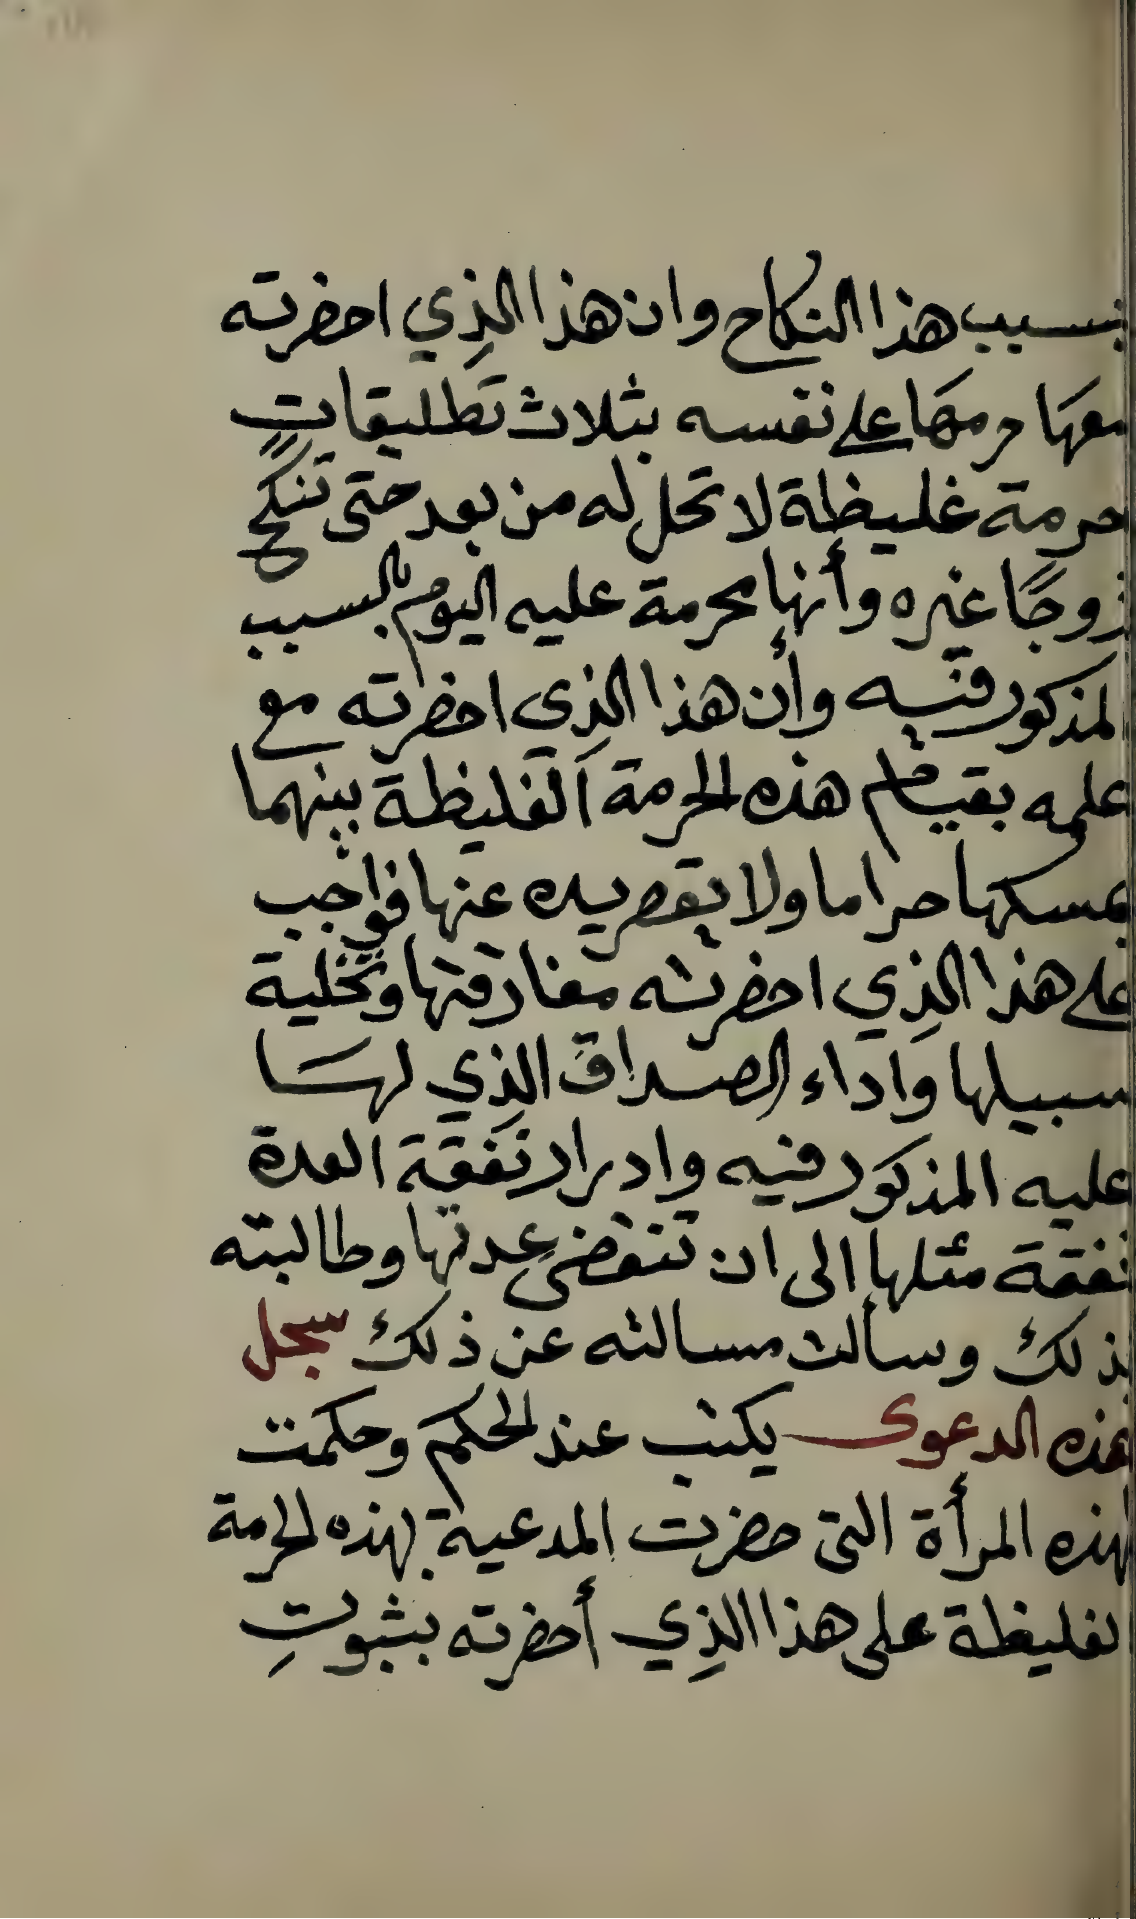 بسبب هذا النكاح وان هذا الذي احضرته
معها حرمها على نفسه بثلاث تطليقات
حرمة غليظة لا تحل له من بعد حتى تنكح
زوجًا غيره وأنها محرمة عليه اليوم بالسبب
المذكور فيه وأن هذا الذى احضرته مع
علمه بقيام هذه الحرمة الغليظة بينهما
يمسكها حراما ولا يقصر يده عنها فواجب
على هذا الذي احضرته مفارقتها وتخلية
سبيلها وأداء الصداق الذي لها
عليه المذكور فيه وادرار نفقة العدة
نفقة مثلها الى ان تنقضى عدتها وطالبته
بذلك وسألت مسالته عن ذلك سجل
هذه الدعوى يكتب عند الحكم وحكمت
لهذه المرأة التى حضرت المدعية بهذه الحرمة
الغليظة على هذا الذي أحضرته بثبوتِ